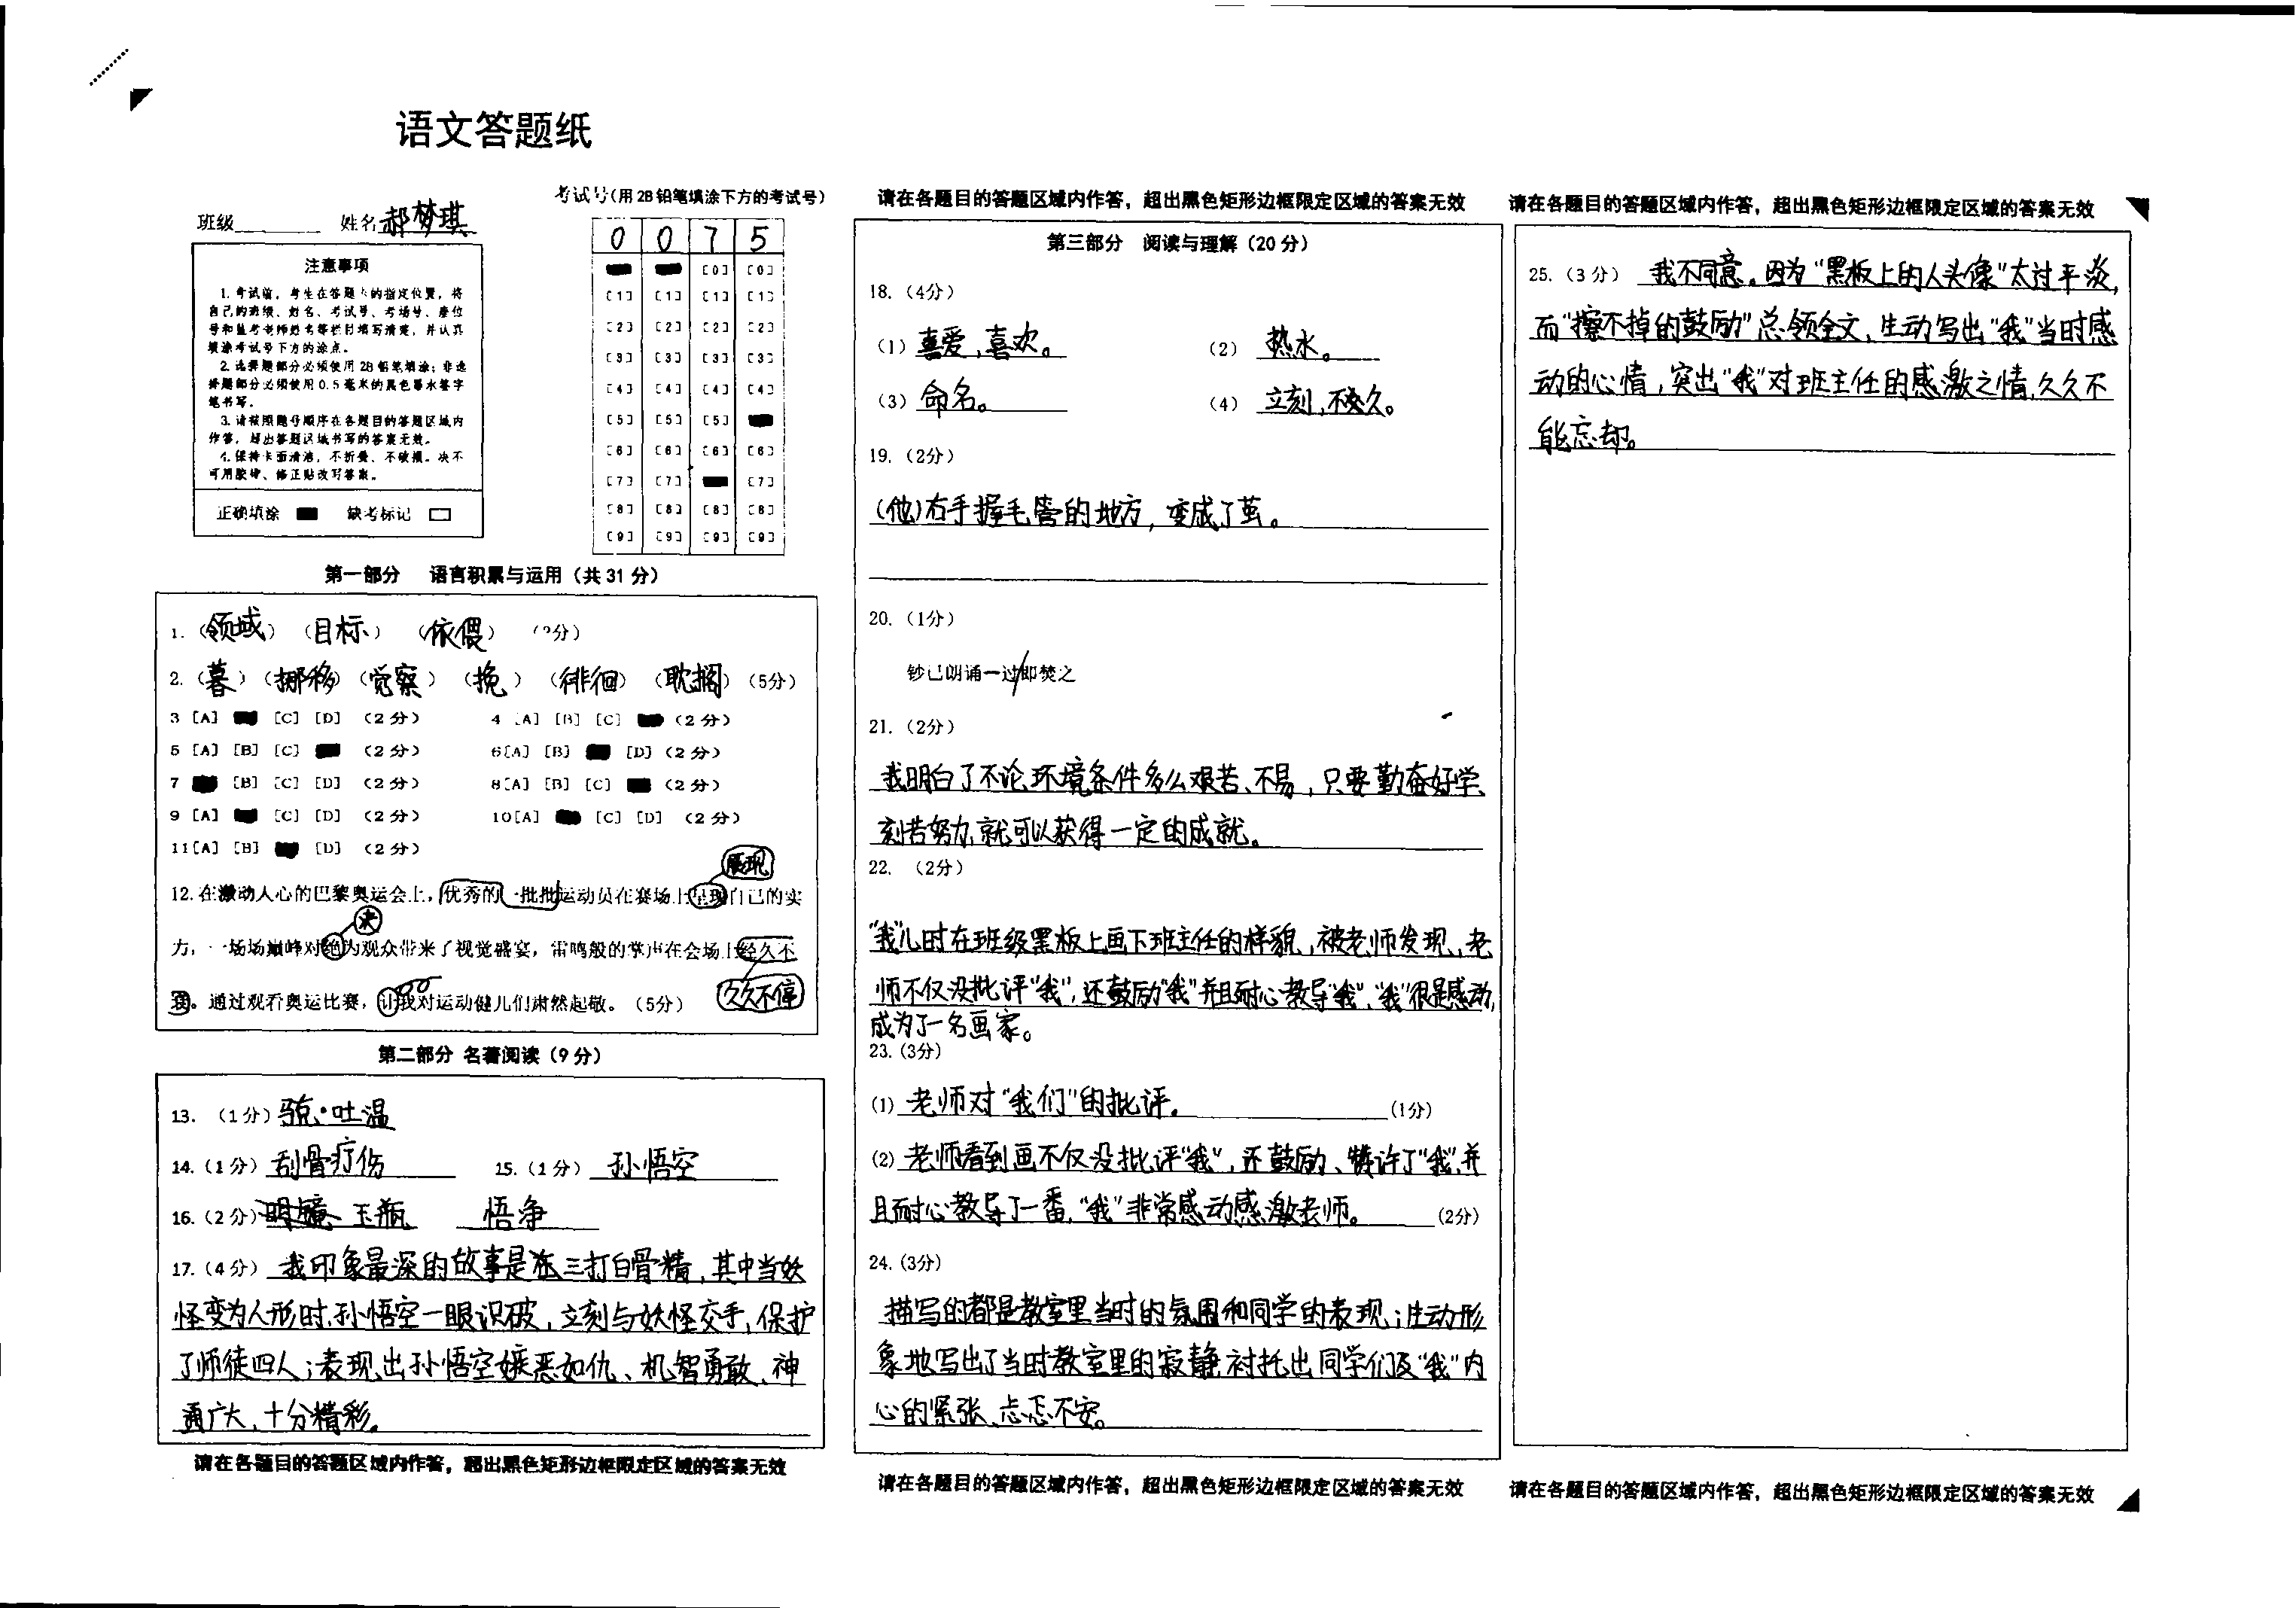 语文答题纸
班级 姓名 郝梦琪
考试号(用 2B 铅笔填涂下方的考试号)
0 0 7 5
[0] [0]
[1] [1] [1] [1]
[2] [2] [2] [2]
[3] [3] [3] [3]
[4] [4] [4] [4]
[5] [5] [5]
[6] [6] [6] [6]
[7] [7] [7]
[8] [8] [8] [8]
[9] [9] [9] [9]
注意事项
1. 考试前，考生在答题卡的指定位置，将
自己的班级、姓名、考试号、考场号、座位
号和监考老师姓名等栏目填写清楚，并认真
填涂考试号下方的涂点。
2. 选择题部分必须使用 2B 铅笔填涂；非选
择题部分必须使用 0.5 毫米的黑色墨水签字
笔书写。
3. 请按照题号顺序在各题目的答题区域内
作答，超出答题区域书写的答案无效。
4. 保持卡面清洁，不折叠、不破损。决不
可用胶带、修正贴改写答案。
正确填涂 缺考标记
第一部分 语言积累与运用（共 31 分）
1. （领域）（目标）（依偎）
2. （暮）（挪移）（觉察）（挽）（徘徊）（耽搁）（5分）
3 [A] [C] [D] （2 分） 4 [A] [B] [C] （2 分）
5 [A] [B] [C] （2 分） 6[A] [B] [D] （2 分）
7 [B] [C] [D] （2 分） 8[A] [B] [C] （2 分）
9 [A] [C] [D] （2 分） 10[A] [C] [D] （2 分）
11[A] [B] [D] （2 分）
展现
12. 在激动人心的巴黎奥运会上，优秀的一批批运动员在赛场上呈现自己的实
决
力，一场场巅峰对绝为观众带来了视觉盛宴，雷鸣般的掌声在会场上经久不
衰。通过观看奥运比赛，让我对运动健儿们肃然起敬。（5分）
久久不停
第二部分 名著阅读（9 分）
13. （1 分）骆·吐温
14.（1 分）刮骨疗伤 15.（1 分）孙悟空
16.（2 分） 玉瓶 悟净
17.（4 分）我印象最深的故事是 三打白骨精，其中当妖
怪变为人形时，孙悟空一眼识破，立刻与妖怪交手，保护
了师徒四人；表现出孙悟空嫉恶如仇、机智勇敢、神
通广大，十分精彩。
请在各题目的答题区域内作答，超出黑色矩形边框限定区域的答案无效
请在各题目的答题区域内作答，超出黑色矩形边框限定区域的答案无效
第三部分 阅读与理解（20 分）
18.（4分）
（1）喜爱，喜欢。 （2）热水。
（3）命名。 （4）立刻，不久。
19.（2分）
(他)右手握毛管的地方，变成了茧。
20.（1分）
钞已朗诵一过/即焚之
21.（2分）
我明白了不论环境条件多么艰苦、不易，只要勤奋好学、
刻苦努力，就可以获得一定的成就。
22. （2分）
“我”儿时在班级黑板上画下班主任的样貌，被老师发现，老
师不仅没批评“我”，还鼓励“我”并且耐心教导“我”，“我”很是感动，
成为了一名画家。
23.（3分）
(1) 老师对“我们”的批评。 (1分)
(2) 老师看到画不仅没批评“我”，还鼓励、赞许了“我”，并
且耐心教导了一番，“我”非常感动感激老师。 (2分)
24.（3分）
描写的都是教室里当时的氛围和同学的表现；生动形
象地写出了当时教室里的寂静，衬托出同学们及“我”内
心的紧张、忐忑不安。
请在各题目的答题区域内作答，超出黑色矩形边框限定区域的答案无效
请在各题目的答题区域内作答，超出黑色矩形边框限定区域的答案无效
25.（3 分） 我不同意。因为“黑板上的人头像”太过平淡，
而“擦不掉的鼓励”总领全文，生动写出“我”当时感
动的心情，突出“我”对班主任的感激之情，久久不
能忘却。
请在各题目的答题区域内作答，超出黑色矩形边框限定区域的答案无效